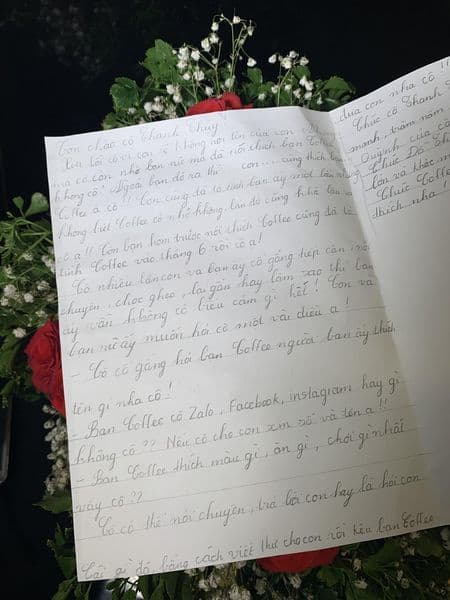 Con chào cô Thanh Thuý
Xin lỗi cô vì con sẽ không nói tên của con nhưng
mà cô còn nhớ bạn nữ mà đã nói thích bạn Coffee
không cô! Ngoài bạn đó ra thì con... cũng thích bạn
Coffee ạ cô!! Con cũng đã tỏ tình bạn ấy một lần rồi
không biết Coffee có nhớ không, lần đó cũng khá lâu
cô ạ!! Còn bạn hôm trước nói thích Coffee cũng đã tỏ
tình Coffee vào tháng 6 rồi cô ạ!
Có nhiều lần con và bạn ấy cố gắng tiếp cận nói
chuyện, chọc ghẹo, lại gần hay làm sao thì bạn
ấy vẫn không có biểu cảm gì hết! Con và
bạn nữ ấy muốn hỏi cô một vài điều ạ!
- Cô cố gắng hỏi bạn Coffee người bạn ấy thích
tên gì nha cô!
- Bạn Coffee có Zalo, Facebook, instagram hay gì
không cô?? Nếu có cho con xin số và tên ạ!!
- Bạn Coffee thích màu gì, ăn gì, chơi gì nhất
vậy cô??
Cô có thể nói chuyện, trả lời con hay là hỏi con
cái gì đó, bằng cách viết thư cho con rồi kêu bạn Coffee
đưa con nha cô!!
Chúc cô Thanh
mạnh, trăm năm
Quỳnh của cô
Chúc Đô
lớn và
Chúc Coffee
thích nha!